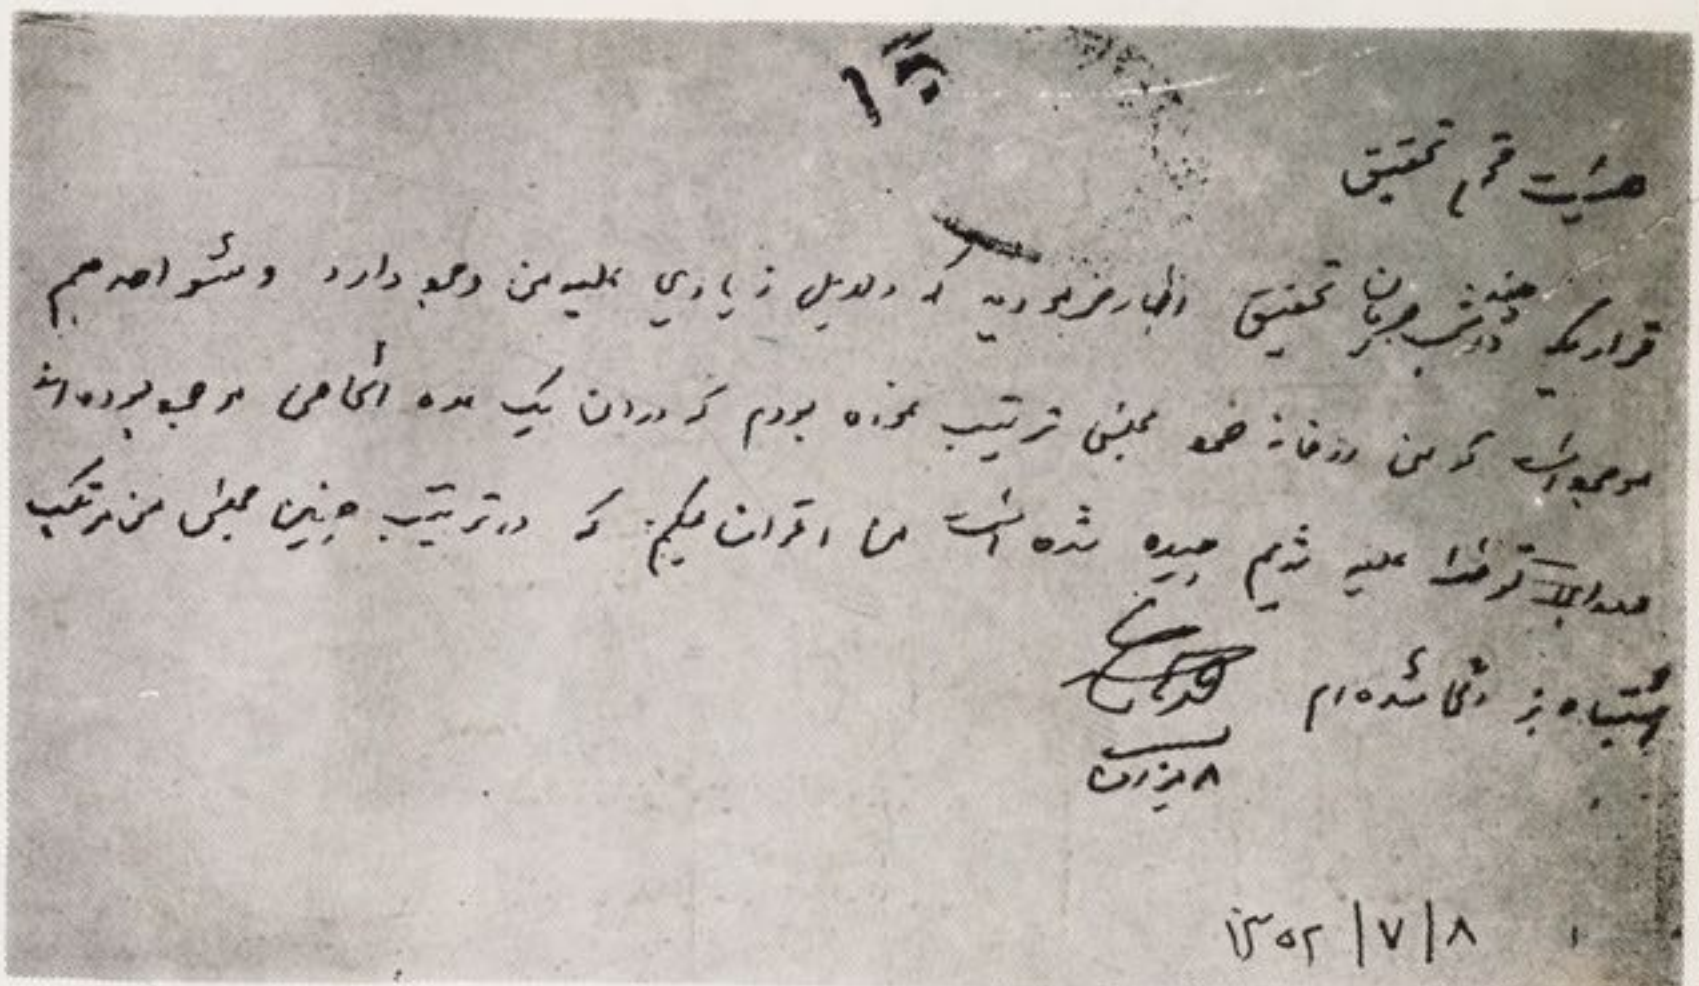 هیئت محترم تحقیق
قراریکه در چند شب جریان تحقیق اظهار فرمودید که دلایل زیادی علیه من وجود دارد و شواهد هم
موجود است که من در خانه خود مجلسی ترتیب نموده بودم که در آن یک عده اشخاص موجود بوده اند
علیه رژیم چیده شده است من اقرار میکنم که در ترتیب چنین مجلس من مرتکب
اشتباه بز شده ام
۸ میزان
۸ / ۷ / ۱۳۵۲